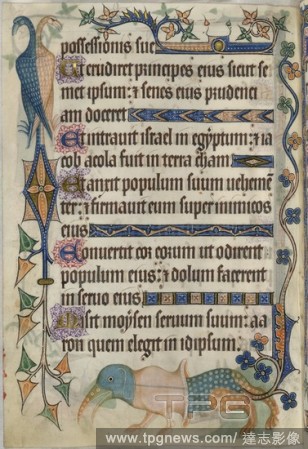 possessionis sue
Ut erudiret principes eius sicut se
met ipsum: ⁊ senes eius prudenci
am doceret
Et intrauit israel in egyptum: ⁊ ia
cob acola fuit in terra cham
Et auxit populum suum uehemen̄
ter: ⁊ firmauit eum super inimicos
eius
Conuertit cor eorum ut odirent
populum eius: ⁊ dolum facerent
in seruo eius
Misit moysen seruum suum: aa
ron quem elegit in idipsum.
TPG
www.tpgnews.com/ 達志影像